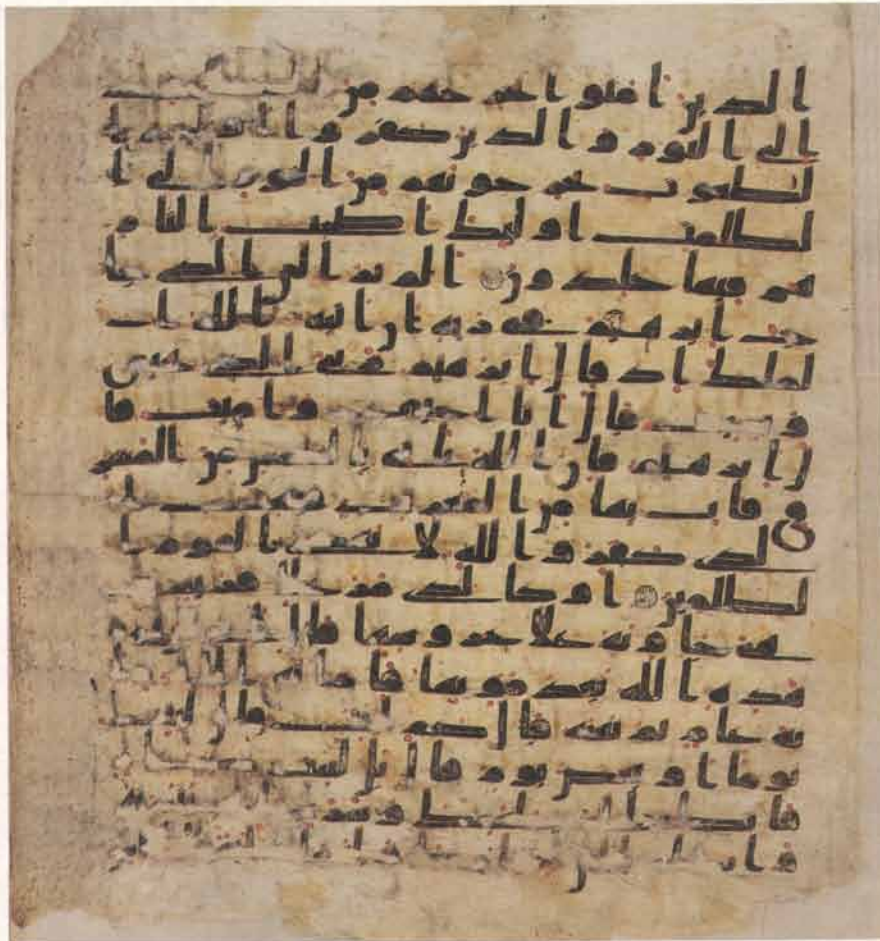 الذين امنوا يخرجهم من الظلمت
الى النور والذين كفروا اوليهم ا
لطغوت يخرجونهم من النور الى ا
لظلمت اوليك اصحب النار
هم فيها خلدون الم تر الى الذى حا
ج ابرهيم فى ربه ان اتيه الله ا
لملك اذ قال ابرهيم ربى الذى يحيى
ويميت قال انا احيى واميت قا
ل ابرهيم فان الله ياتى بالشمس من المشر
ق فات بها من المغرب فبهت ا
لذى كفر والله لا يهدى القوم ا
لظلمين او كالذى مر على قرية و
هى خاوية على عروشها قال انى يحيى
هذه الله بعد موتها فاماته الله ما
ية عام ثم بعثه قال كم لبثت قال لبثت
يوما او بعض يوم قال بل لبثت
فانظر الى